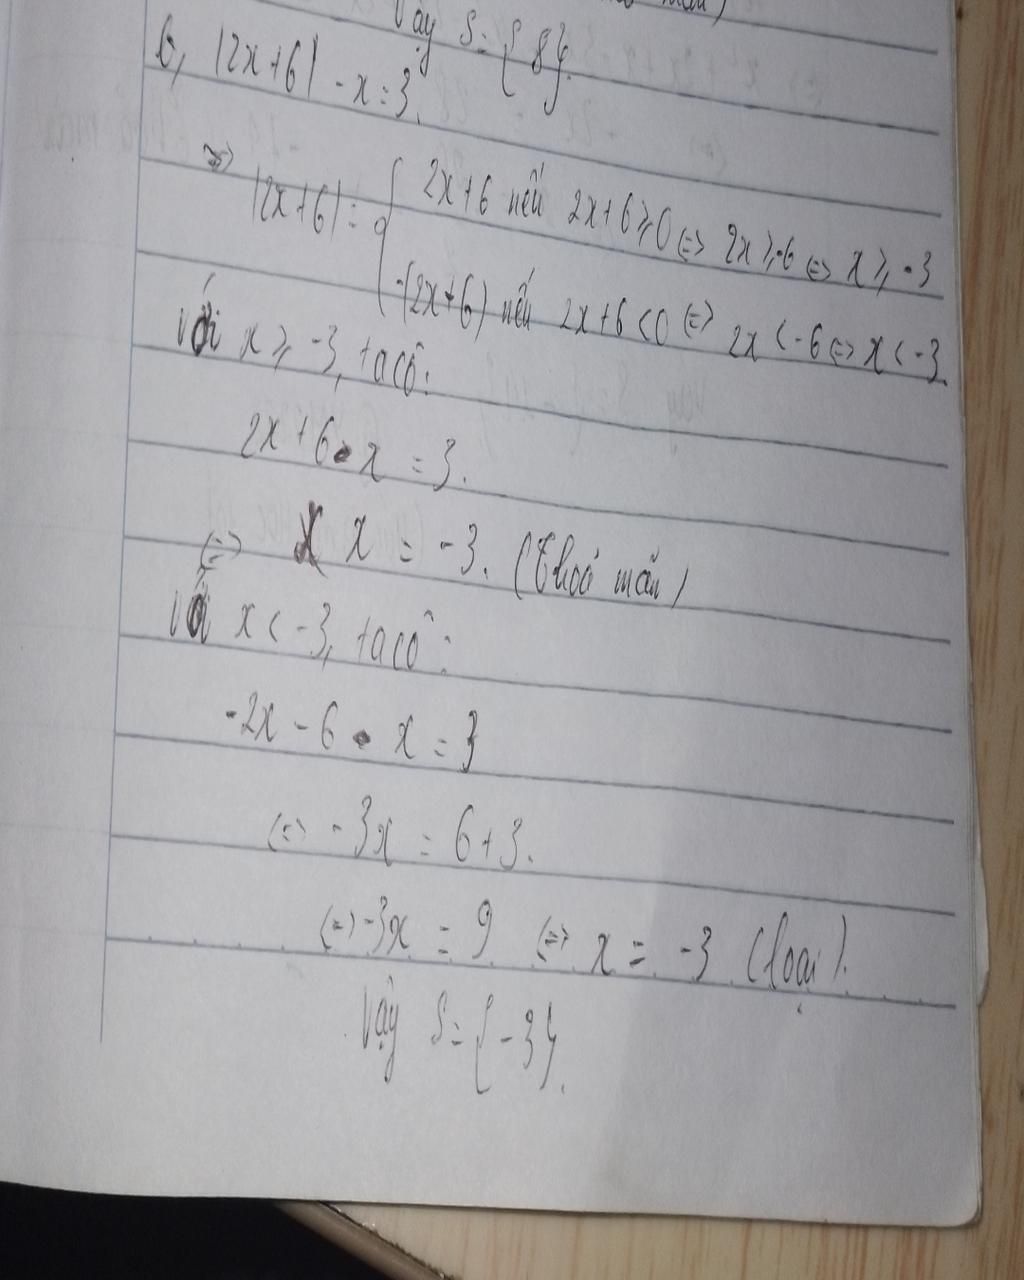 Vậy S = {8}.
b, |2x+6| - x = 3.
=> |2x+6| = { 2x+6 nếu 2x+6 ≥ 0 <=> 2x ≥ -6 <=> x ≥ -3
-(2x+6) nếu 2x+6 < 0 <=> 2x < -6 <=> x < -3.
Với x ≥ -3, ta có:
2x + 6 - x = 3.
<=> x = -3. (Thoả mãn)
Với x < -3, ta có:
-2x - 6 - x = 3
<=> -3x = 6 + 3.
<=> -3x = 9 <=> x = -3 (loại).
Vậy S = {-3}.